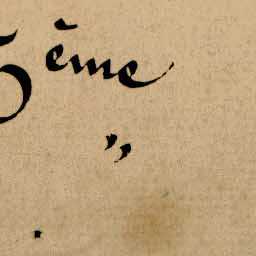 5ème
"
.